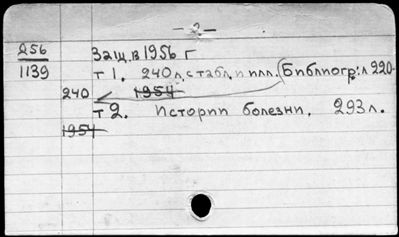 — 2 —
256
1139
Защ. в 1956 г
т 1. 240 л. с табл. и илл. Библиогр: л 220-
240
1954
т 2. Истории болезни, 293 л.
1954